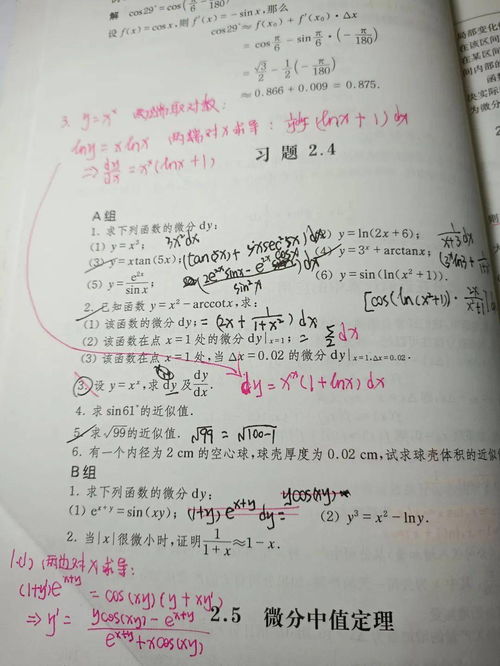 解 cos29°=cos(π/6 - π/180)
设 f(x)=cosx,则 f'(x)=-sinx,那么
cos29°≈f(x₀)+f'(x₀)·Δx
=cos π/6 - sin π/6 ·(-π/180)
=√3/2 - 1/2(-π/180)
≈0.866+0.009=0.875.
3. y=xˣ 两端取对数:
lny=xlnx 两端对x求导: (lnx+1)dx
⇒ dy/dx = xˣ(lnx+1)
习题 2.4
A组
1. 求下列函数的微分 dy:
(1) y=x³; 3x²dx (2) y=ln(2x+6); 1/(x+3) dx
(3) y=xtan(5x); (tan(5x)+5xsec²5x)dx (4) y=3ˣ+arctanx; (3ˣln3+
(5) y=e²ˣ/sinx; (2e²ˣsinx-e²ˣcosx)/sin²x dx (6) y=sin(ln(x²+1)).
[cos(ln(x²+1))·2x/(x²+1)]
2. 已知函数 y=x²-arccotx,求:
(1) 该函数的微分 dy; =(2x+1/(1+x²))dx
(2) 该函数在点 x=1 处的微分 dy|ₓ₌₁; =5/2 dx
(3) 该函数在点 x=1 处,当 Δx=0.02 的微分 dy|ₓ₌₁,Δₓ₌₀.₀₂.
3. 设 y=xˣ,求 dy 及 dy/dx. dy=xˣ(1+lnx)dx
4. 求 sin61°的近似值.
5. 求√99的近似值. √99=√100-1
6. 有一个内径为 2 cm 的空心球,球壳厚度为 0.02 cm,试求球壳体积的近似
B组
1. 求下列函数的微分 dy:
(1) eˣ⁺ʸ=sin(xy); (1+y)eˣ⁺ʸdy= ycos(xy) (2) y³=x²-lny.
2. 当|x|很微小时,证明 1/(1+x)≈1-x.
1.(1) 两边对x求导:
(1+y')eˣ⁺ʸ=cos(xy)(y+xy')
⇒ y'=(ycos(xy)-eˣ⁺ʸ)/(eˣ⁺ʸ-xcos(xy))
2.5 微分中值定理